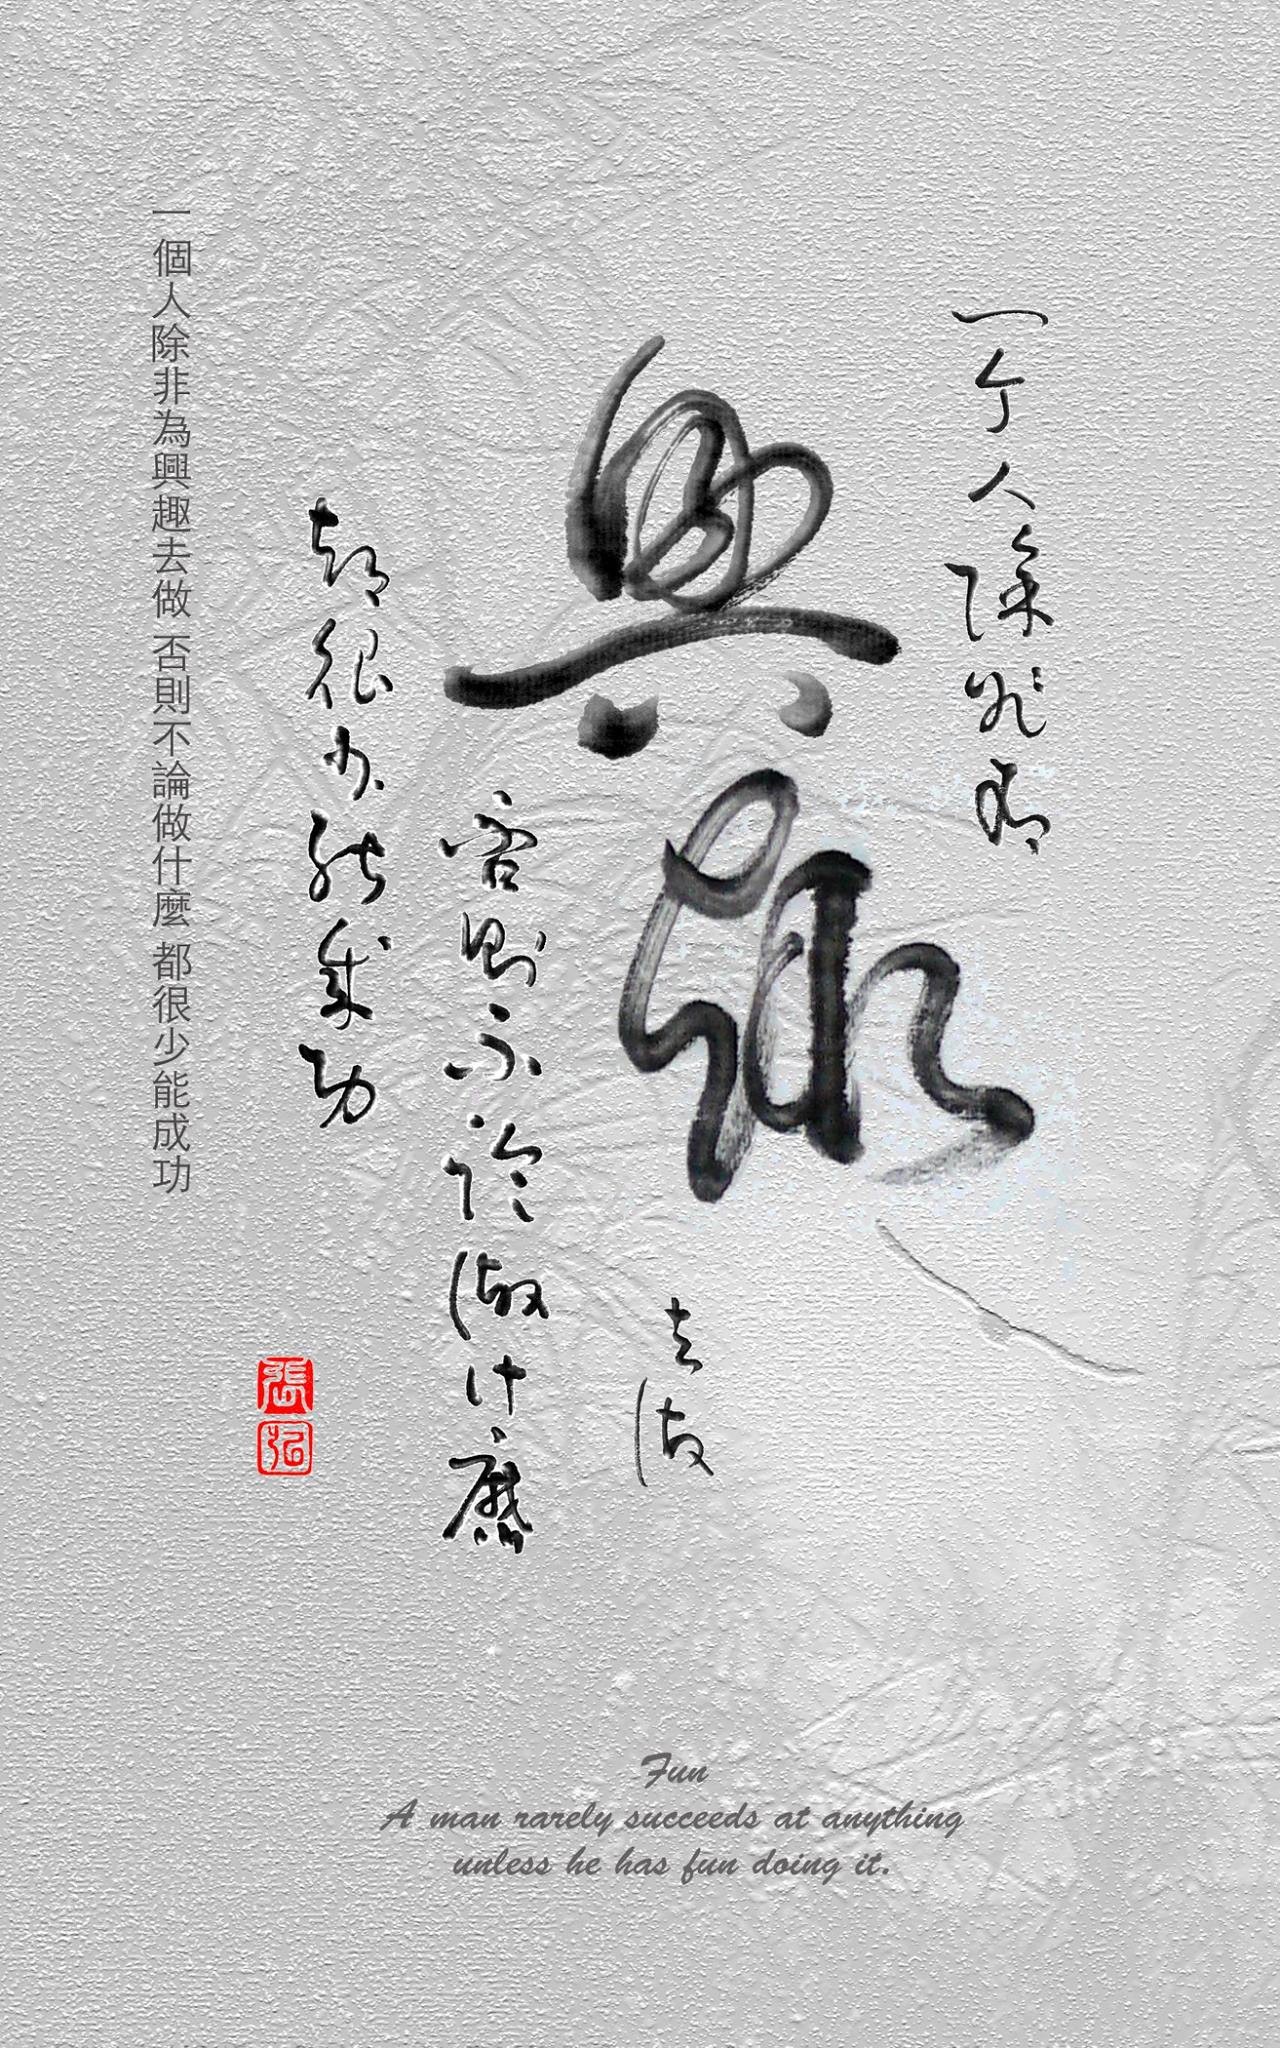 一个人除非為
興趣
去做
否則不論做什麼
都很少能成功
一個人除非為興趣去做 否則不論做什麼 都很少能成功
Fun
A man rarely succeeds at anything
unless he has fun doing it.